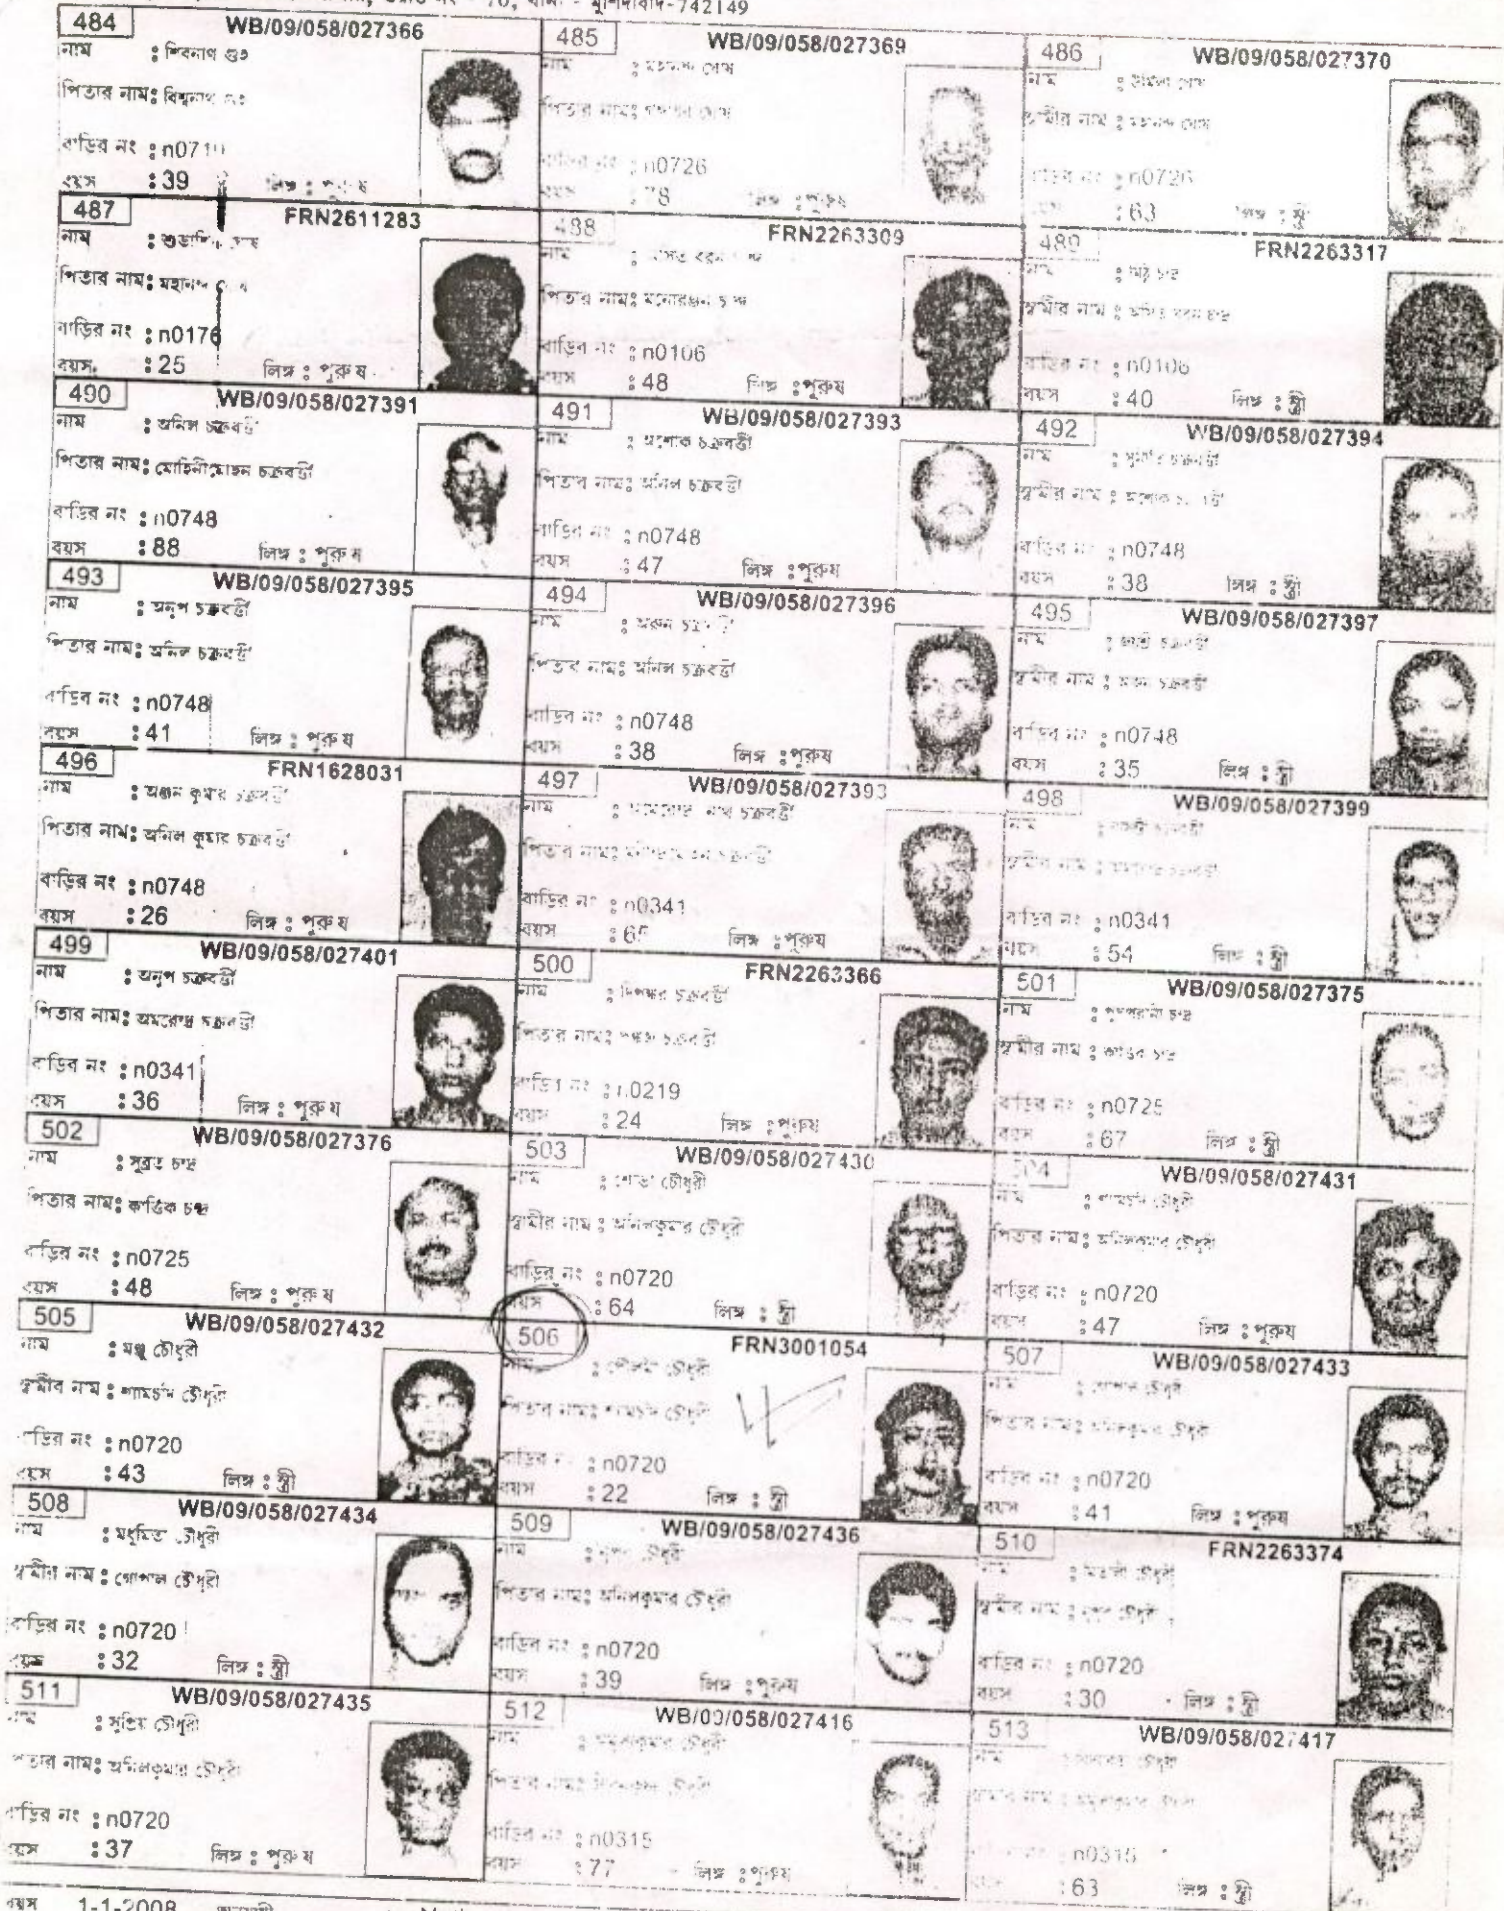 মুর্শিদাবাদ-742149
484 WB/09/058/027366
নাম : শিবনাথ গুপ্ত
পিতার নামঃ বিশ্বনাথ
বাড়ির নং :
বয়স : 39 লিঙ্গ : পুরুষ
485 WB/09/058/027369
নাম : মহানন্দ ঘোষ
পিতার নামঃ ঘোষ
বাড়ির নং : n0726
বয়স : 78 লিঙ্গ : পুরুষ
486 WB/09/058/027370
নাম : ঊর্মিলা ঘোষ
স্বামীর নাম : মহানন্দ ঘোষ
বাড়ির নং : n0726
বয়স : 63 লিঙ্গ : স্ত্রী
487 FRN2611283
নাম : শুভাশিষ ঘোষ
পিতার নামঃ মহানন্দ ঘোষ
বাড়ির নং : n0176
বয়স : 25 লিঙ্গ : পুরুষ
488 FRN2263309
নাম : অসিত বরন চন্দ্র
পিতার নামঃ মনোরঞ্জন চন্দ্র
বাড়ির নং : n0106
বয়স : 48 লিঙ্গ : পুরুষ
489 FRN2263317
নাম : মিঠু চন্দ্র
স্বামীর নাম : অসিত বরন চন্দ্র
বাড়ির নং : n0106
বয়স : 40 লিঙ্গ : স্ত্রী
490 WB/09/058/027391
নাম : অনিল চক্রবর্ত্তী
পিতার নামঃ মোহিনীমোহন চক্রবর্ত্তী
বাড়ির নং : n0748
বয়স : 88 লিঙ্গ : পুরুষ
491 WB/09/058/027393
নাম : অশোক চক্রবর্ত্তী
পিতার নামঃ অনিল চক্রবর্ত্তী
বাড়ির নং : n0748
বয়স : 47 লিঙ্গ : পুরুষ
492 WB/09/058/027394
নাম : চক্রবর্ত্তী
স্বামীর নাম : অশোক চক্রবর্ত্তী
বাড়ির নং : n0748
বয়স : 38 লিঙ্গ : স্ত্রী
493 WB/09/058/027395
নাম : অনুপ চক্রবর্ত্তী
পিতার নামঃ অনিল চক্রবর্ত্তী
বাড়ির নং : n0748
বয়স : 41 লিঙ্গ : পুরুষ
494 WB/09/058/027396
নাম : অরুন চক্রবর্ত্তী
পিতার নামঃ অনিল চক্রবর্ত্তী
বাড়ির নং : n0748
বয়স : 38 লিঙ্গ : পুরুষ
495 WB/09/058/027397
নাম : চক্রবর্ত্তী
স্বামীর নাম : অরুন চক্রবর্ত্তী
বাড়ির নং : n0748
বয়স : 35 লিঙ্গ : স্ত্রী
496 FRN1628031
নাম : অঞ্জন কুমার চক্রবর্ত্তী
পিতার নামঃ অনিল কুমার চক্রবর্ত্তী
বাড়ির নং : n0748
বয়স : 26 লিঙ্গ : পুরুষ
497 WB/09/058/027393
নাম : নাথ চক্রবর্ত্তী
পিতার নামঃ চক্রবর্ত্তী
বাড়ির নং : n0341
বয়স : লিঙ্গ : পুরুষ
498 WB/09/058/027399
নাম : চক্রবর্ত্তী
স্বামীর নাম : চক্রবর্ত্তী
বাড়ির নং : n0341
বয়স : 54 লিঙ্গ : স্ত্রী
499 WB/09/058/027401
নাম : অনুপ চক্রবর্ত্তী
পিতার নামঃ অমরেন্দ্র চক্রবর্ত্তী
বাড়ির নং : n0341
বয়স : 36 লিঙ্গ : পুরুষ
500 FRN2263366
নাম : দিপঙ্কর চক্রবর্ত্তী
পিতার নামঃ পঙ্কজ চক্রবর্ত্তী
বাড়ির নং : n0219
বয়স : 24 লিঙ্গ : পুরুষ
501 WB/09/058/027375
নাম : পুষ্পরানী চন্দ্র
স্বামীর নাম : কার্ত্তিক চন্দ্র
বাড়ির নং : n0725
বয়স : 67 লিঙ্গ : স্ত্রী
502 WB/09/058/027376
নাম : সুব্রত চন্দ্র
পিতার নামঃ কার্ত্তিক চন্দ্র
বাড়ির নং : n0725
বয়স : 48 লিঙ্গ : পুরুষ
503 WB/09/058/027430
নাম : শোভা চৌধুরী
স্বামীর নাম : অনিলকুমার চৌধুরী
বাড়ির নং : n0720
বয়স : 64 লিঙ্গ : স্ত্রী
504 WB/09/058/027431
নাম : শ্যামচাঁদ চৌধুরী
পিতার নামঃ অনিলকুমার চৌধুরী
বাড়ির নং : n0720
বয়স : 47 লিঙ্গ : পুরুষ
505 WB/09/058/027432
নাম : মঞ্জু চৌধুরী
স্বামীর নাম : শ্যামচাঁদ চৌধুরী
বাড়ির নং : n0720
বয়স : 43 লিঙ্গ : স্ত্রী
506 FRN3001054
নাম : চৌধুরী
পিতার নামঃ শ্যামচাঁদ চৌধুরী
বাড়ির নং : n0720
বয়স : 22 লিঙ্গ : স্ত্রী
507 WB/09/058/027433
নাম : গোপাল চৌধুরী
পিতার নামঃ অনিলকুমার চৌধুরী
বাড়ির নং : n0720
বয়স : 41 লিঙ্গ : পুরুষ
508 WB/09/058/027434
নাম : মধুমিতা চৌধুরী
স্বামীর নাম : গোপাল চৌধুরী
বাড়ির নং : n0720
বয়স : 32 লিঙ্গ : স্ত্রী
509 WB/09/058/027436
নাম : চৌধুরী
পিতার নামঃ অনিলকুমার চৌধুরী
বাড়ির নং : n0720
বয়স : 39 লিঙ্গ : পুরুষ
510 FRN2263374
নাম : চৌধুরী
স্বামীর নাম : চৌধুরী
বাড়ির নং : n0720
বয়স : 30 লিঙ্গ : স্ত্রী
511 WB/09/058/027435
নাম : সুপ্রিয় চৌধুরী
পিতার নামঃ অনিলকুমার চৌধুরী
বাড়ির নং : n0720
বয়স : 37 লিঙ্গ : পুরুষ
512 WB/09/058/027416
নাম : চৌধুরী
পিতার নামঃ চৌধুরী
বাড়ির নং : n0315
বয়স : 77 লিঙ্গ : পুরুষ
513 WB/09/058/027417
নাম : চৌধুরী
স্বামীর নাম :
n0315
: 63 লিঙ্গ : স্ত্রী
বয়স 1-1-2008